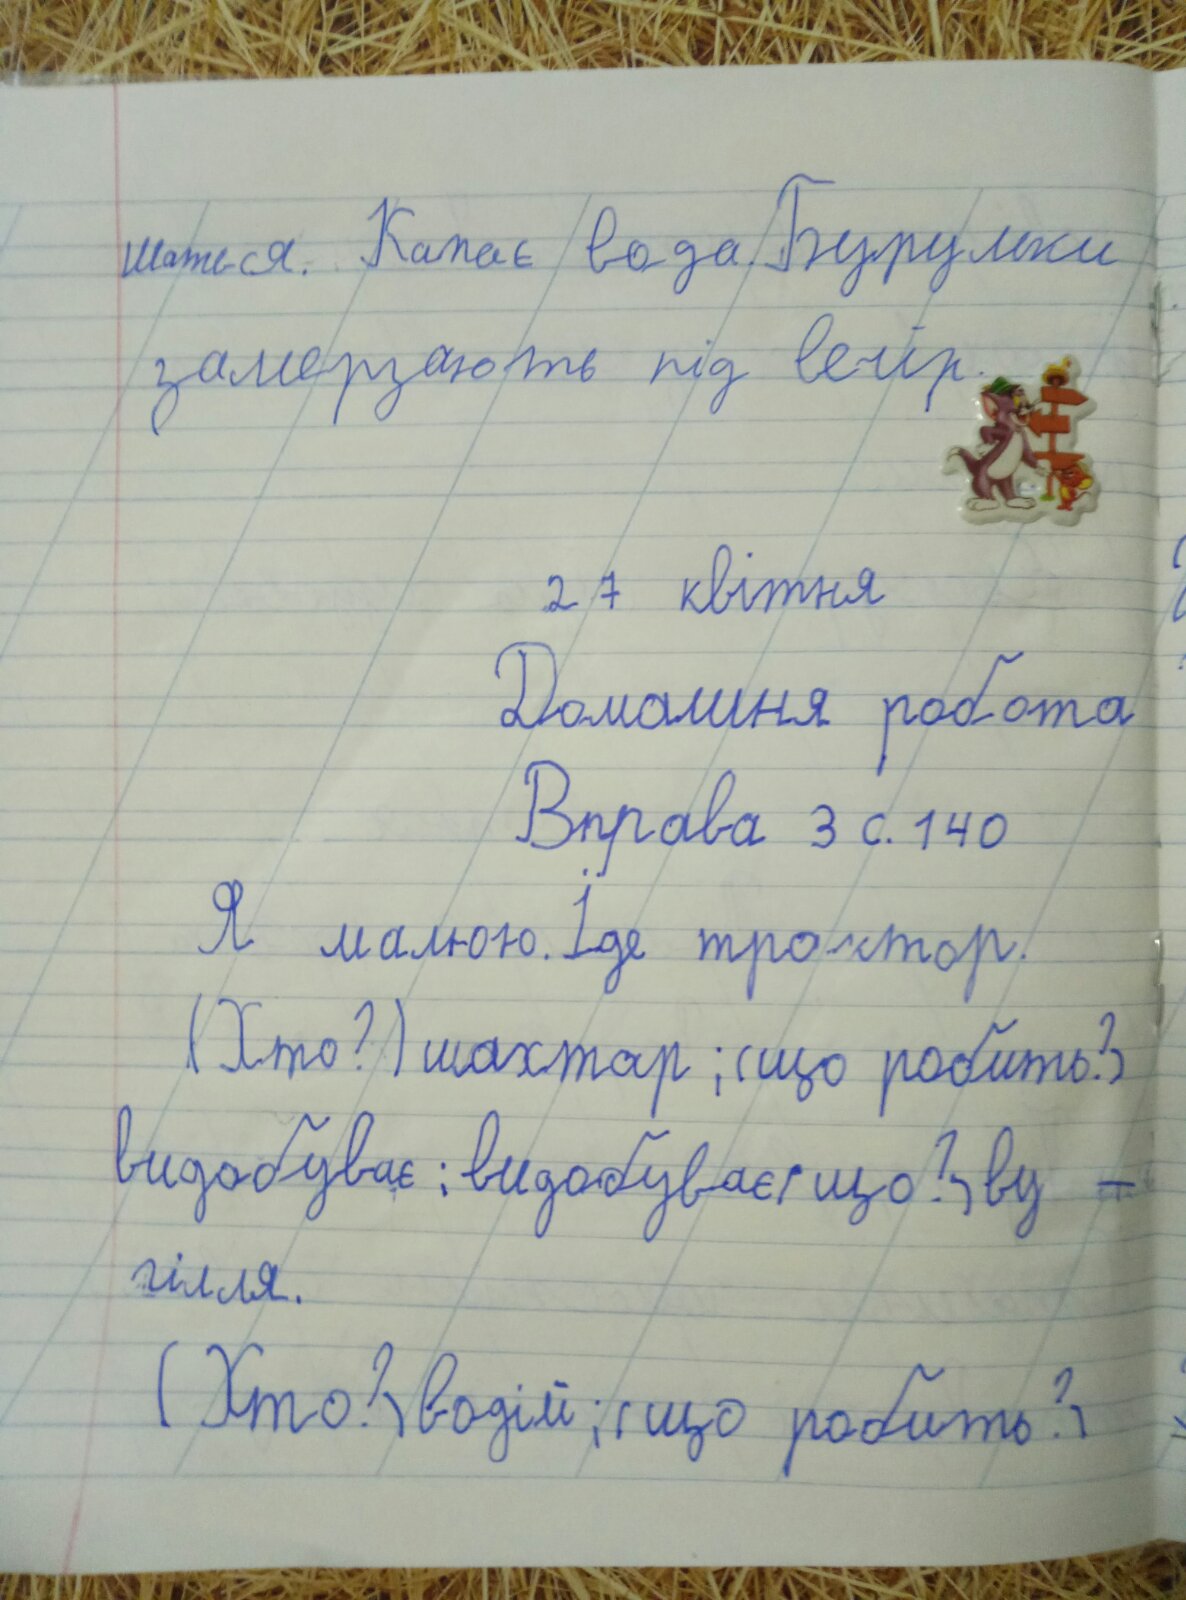 шатися. Капає вода. Бурульки
замерзають під вечір.
27 квітня
Домашня робота
Вправа 3 с. 140
Я малюю. Їде трактор.
(Хто?) шахтар; (що робить?)
видобуває; видобуває (що?) ву-
гілля.
(Хто?) водій; (що робить?)